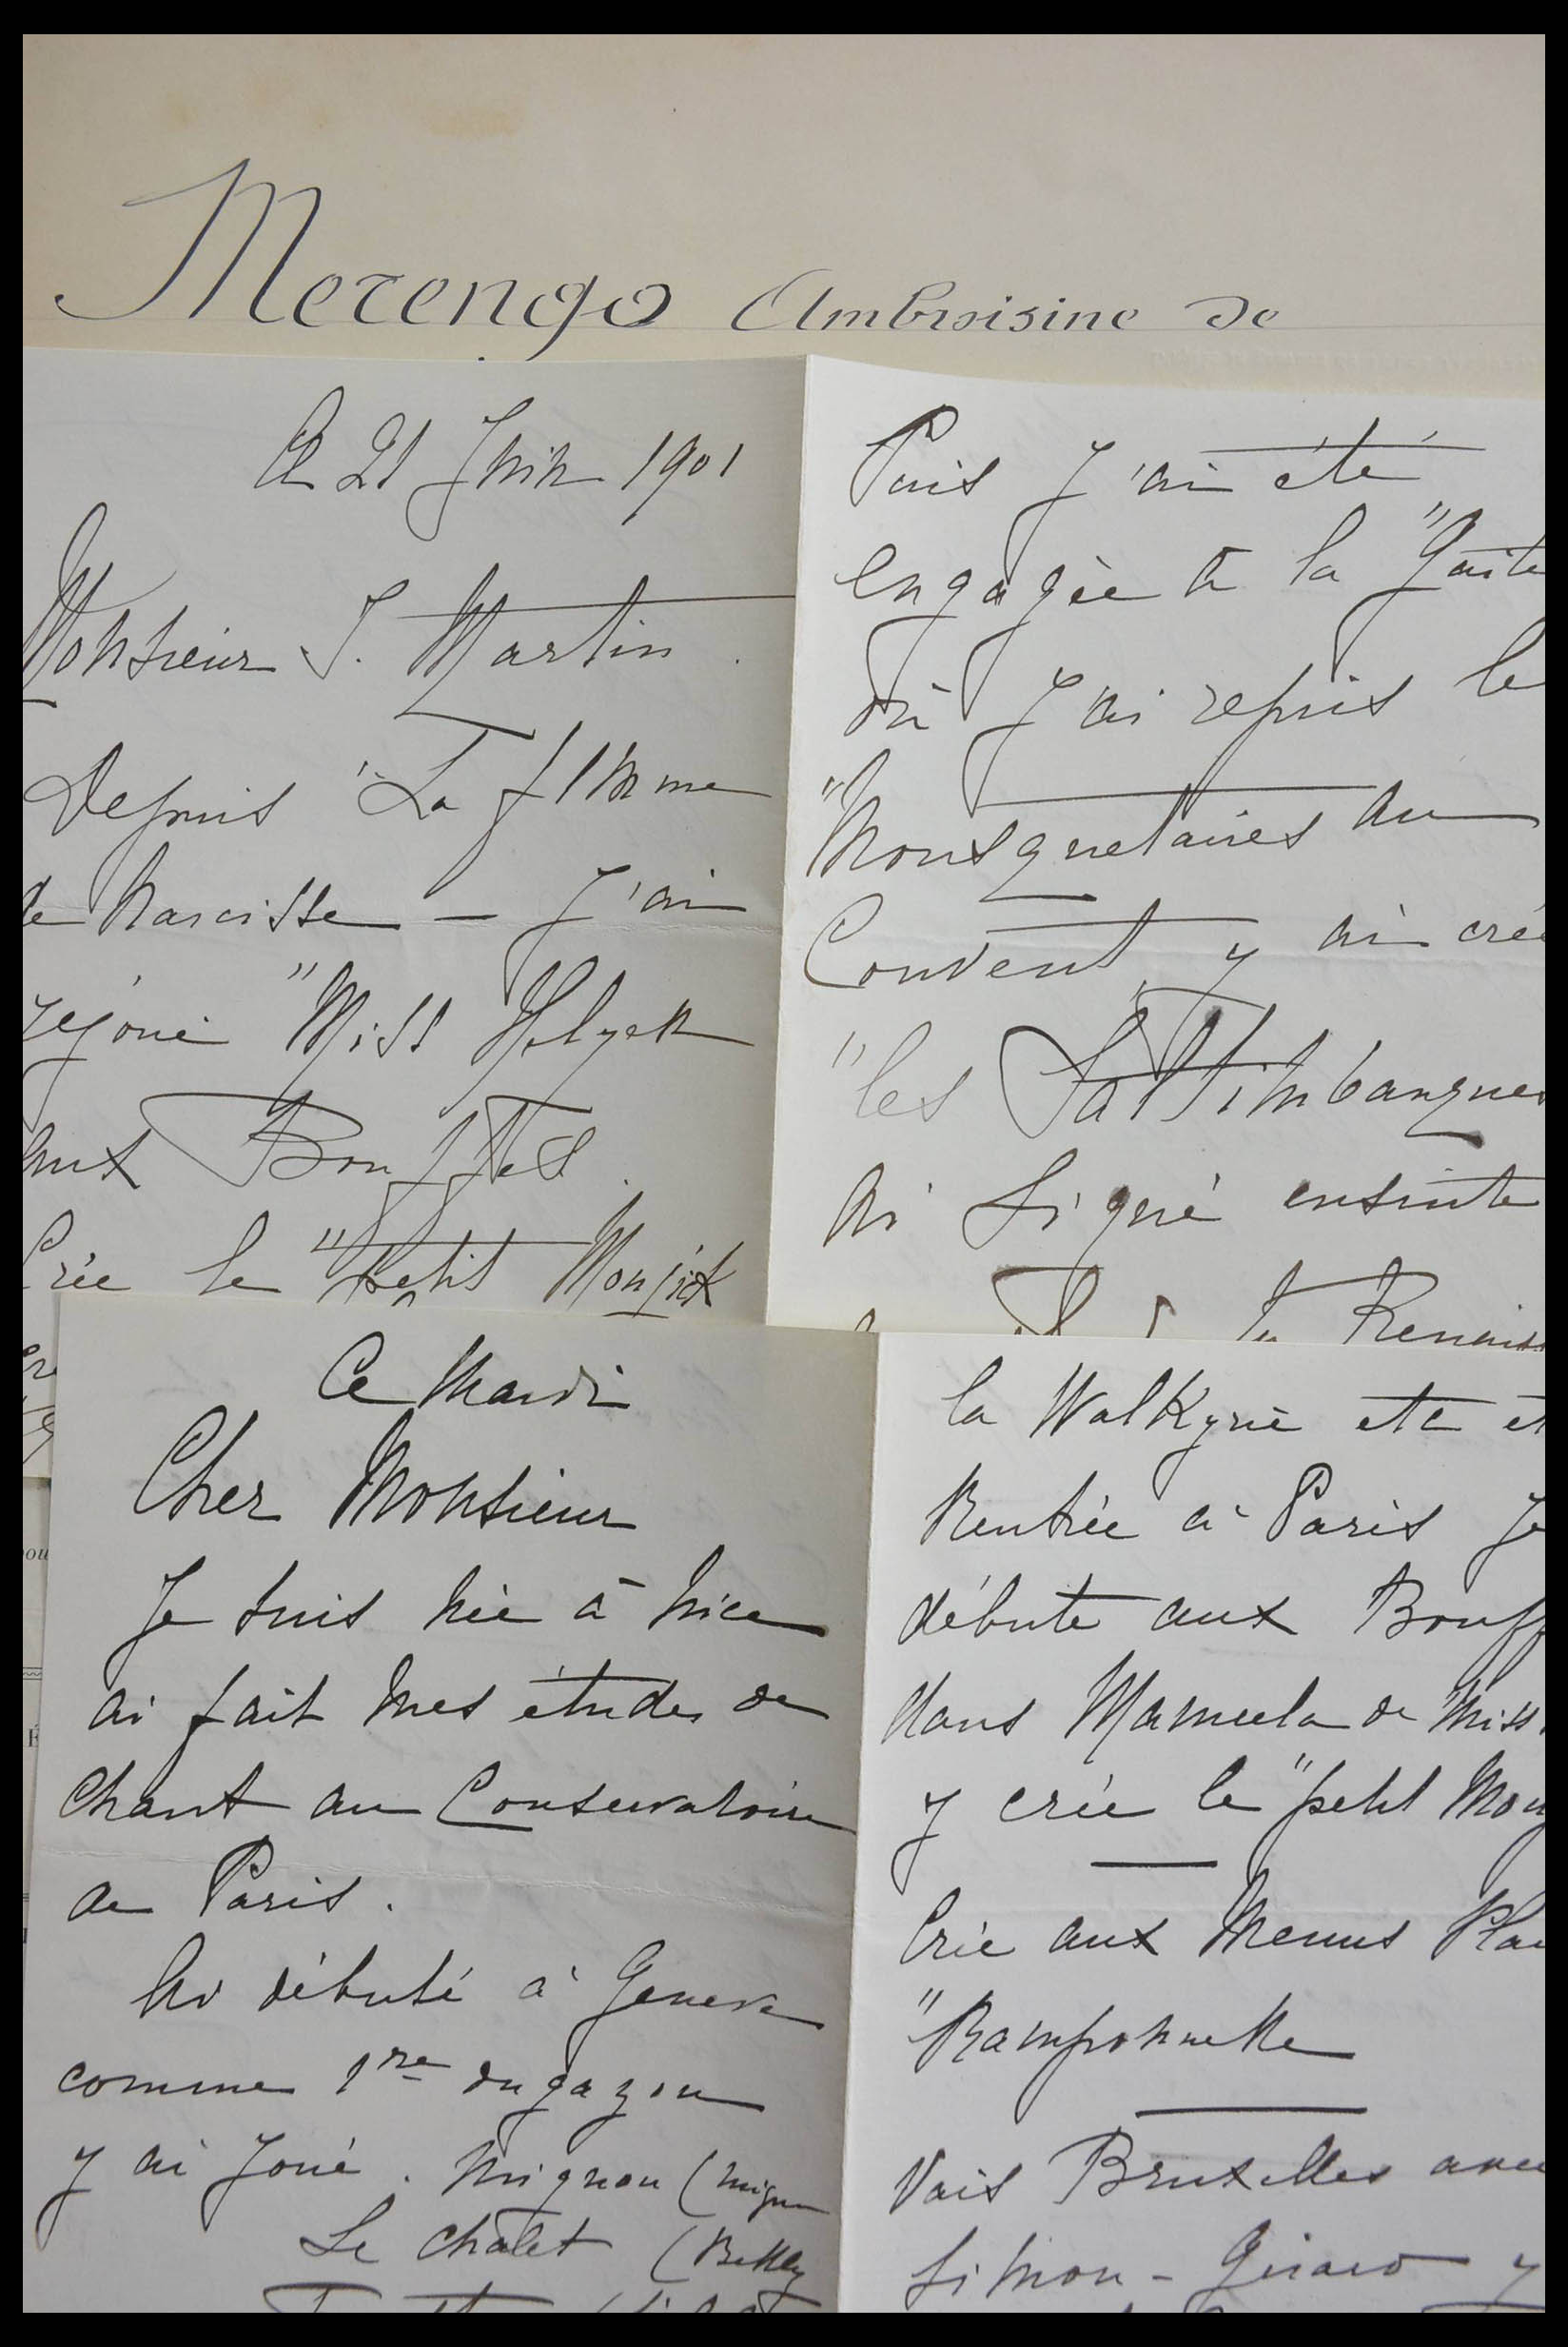 Merengo Ambroisine de
Ce 21 Juin 1901
Monsieur J. Martin.
Depuis "La femme
de Narcisse — J'ai
rejoué "Miss Helyett
aux Bouffes.
Crée le "Petit Moujick
Puis J'ai été
engagée à la "Gaité
où J'ai repris le
"Mousquetaires au
Couvent, y ai créé
"les Saltimbanques
ai signé ensuite
la Renaiss
Ce Mardi
Cher Monsieur
Je suis née à Nice
ai fait mes études de
chant au Conservatoire
de Paris.
Ai débuté à Geneve
comme 1re dugazon
y ai Joué. Mignon (Mignon
Le chalet (Bettly
la Walkyrie etc et
Rentrée à Paris Je
débute aux Bouff
dans Manuela de Miss
y crée le "petit Mouj
Crée aux Menus Plai
"Ramponnette
Vais Bruxelles avec
Simon - Girard y